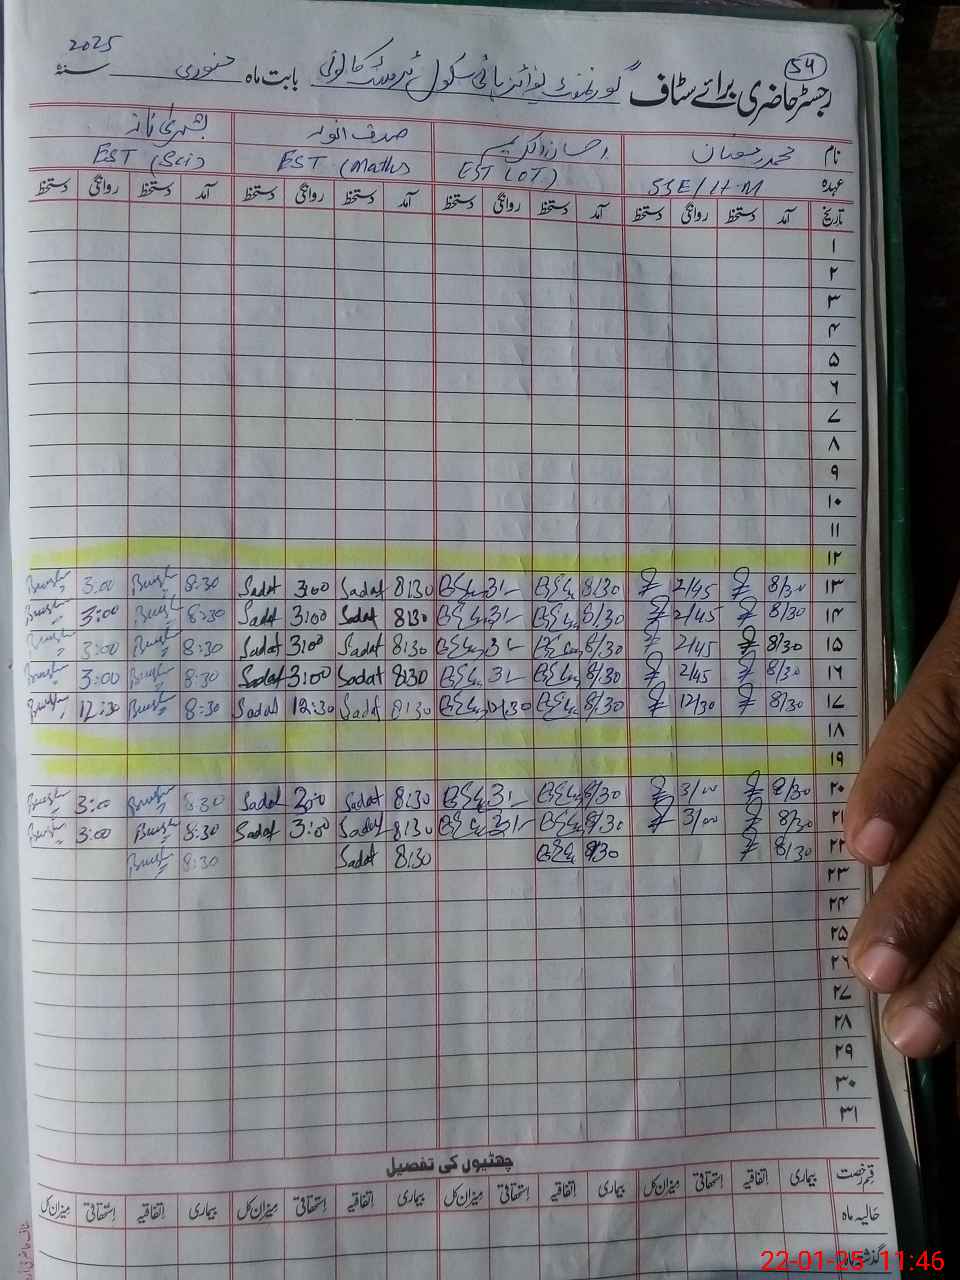 54
رجسٹر حاضری برائے سٹاف گورنمنٹ بوائز ہائی سکول کالونی بابت ماہ جنوری سنہ 2025
نام محمد رمضان احسان الکریم صدف انور بشریٰ ناز
عہدہ SSE/H.M EST (OT) EST (Maths EST (Sci)
تاریخ آمد دستخط روانگی دستخط آمد دستخط روانگی دستخط آمد دستخط روانگی دستخط آمد دستخط روانگی دستخط
۱
۲
۳
۴
۵
۶
۷
۸
۹
۱۰
۱۱
۱۲
۱۳ 8/30 2/45 8/30 3/- 8:30 Sadaf 3:00 Sadaf 8:30 3:00
۱۴ 8/30 2/45 8/30 3/- 8:30 Sadaf 3:00 Sadaf 8:30 3:00
۱۵ 8/30 2/45 8/30 3/- 8:30 Sadaf 3:00 Sadaf 8:30 3:00
۱۶ 8/30 2/45 8/30 3/- 8:30 Sadaf 3:00 Sadaf 8:30 3:00
۱۷ 8/30 12/30 8/30 12/30 8:30 Sadaf 12:30 Sadaf 8:30 12:30
۱۸
۱۹
۲۰ 8/30 3/00 8/30 3/- 8:30 Sadaf 3:00 Sadaf 8:30 3:00
۲۱ 8/30 3/00 8/30 3/- 8:30 Sadaf 3:00 Sadaf 8:30 3:00
۲۲ 8/30 8/30 8:30 Sadaf 8:30
۲۳
۲۴
۲۵
۲۶
۲۷
۲۸
۲۹
۳۰
۳۱
چھٹیوں کی تفصیل
قسم رخصت بیماری اتفاقیہ استحقاقی میزان کل بیماری اتفاقیہ استحقاقی میزان کل بیماری اتفاقیہ استحقاقی میزان کل بیماری اتفاقیہ استحقاقی میزان کل
حالیہ ماہ
گذشتہ ماہ
22-01-25 11:46